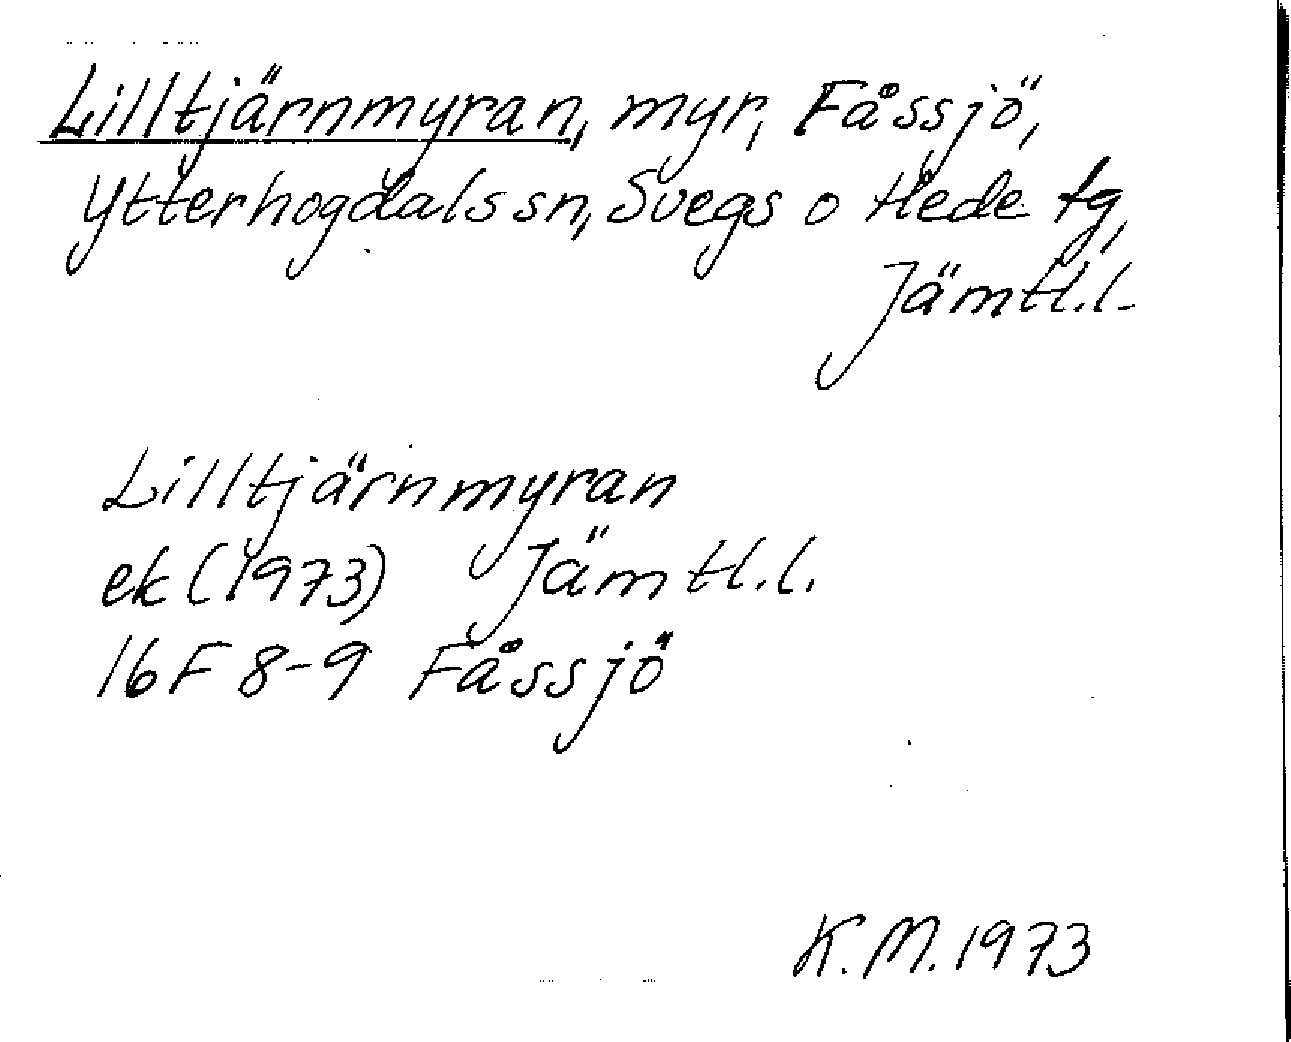 Lilltjärnmyran, myr, Fåssjö,
Ytterhogdals sn, Svegs o Hede tg,
Jämtl.l.
Lilltjärnmyran
ek (1973) Jämtl.l.
16F 8-9 Fåssjö
K.M. 1973